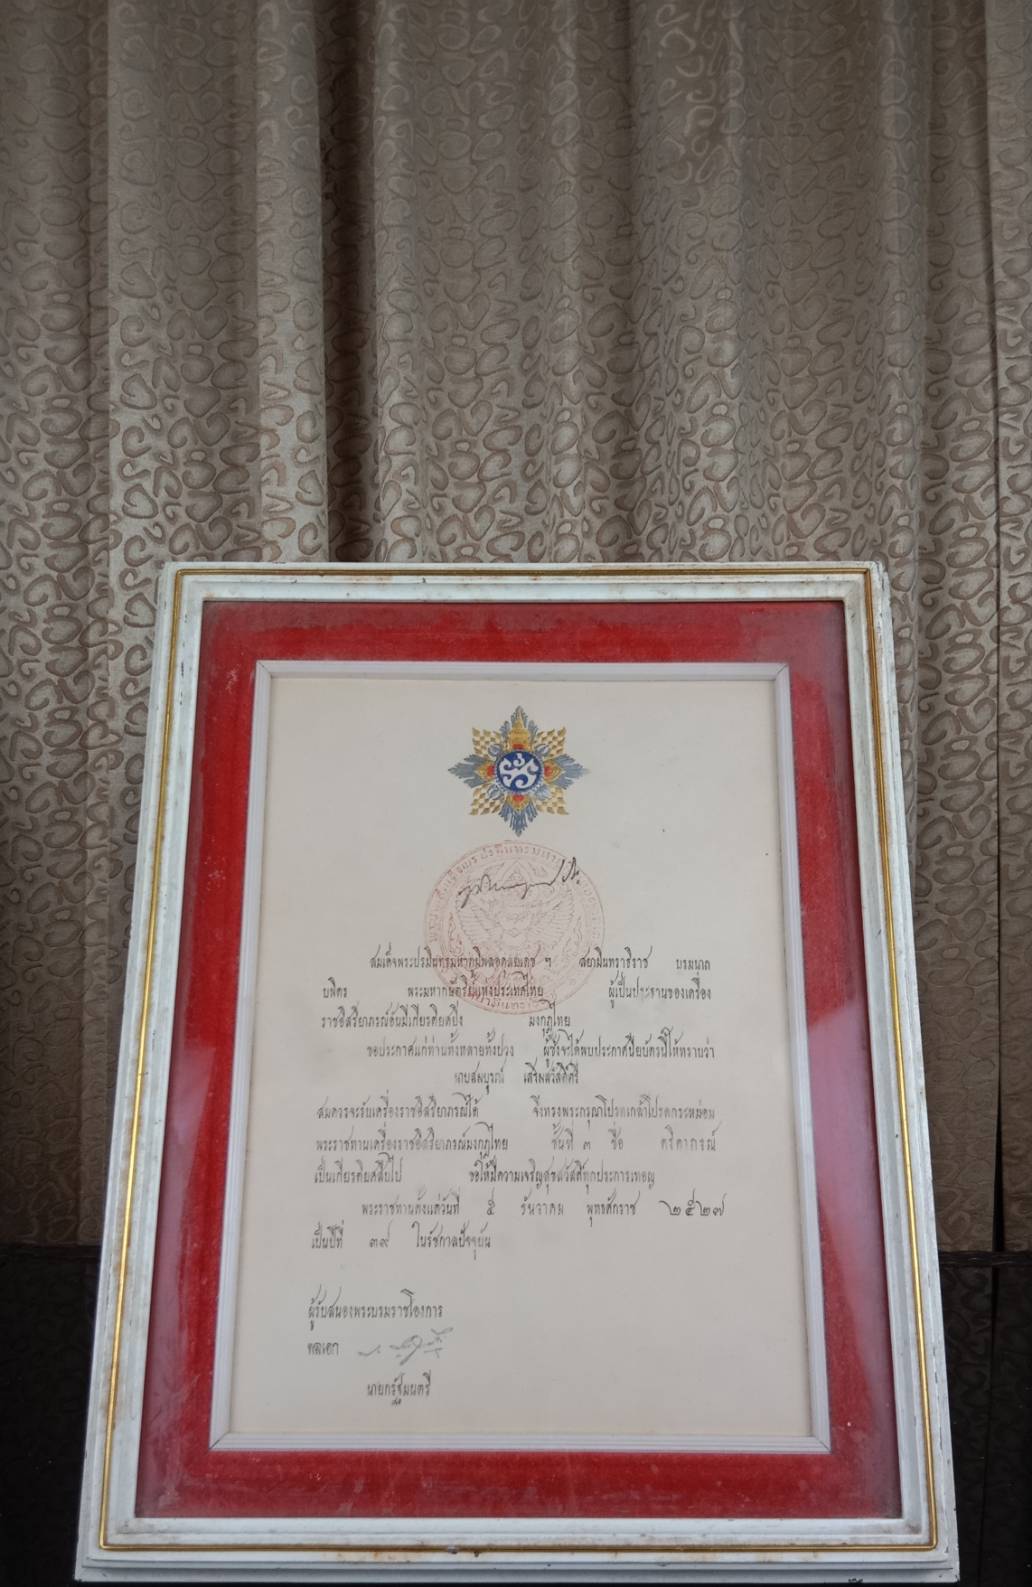 สมเด็จพระปรมินทรมหาภูมิพลอดุลยเดช ฯ สยามินทราธิราช บรมนาถ
บพิตร พระมหากษัตริย์แห่งประเทศไทย ผู้เป็นประธานของเครื่อง
ราชอิสริยาภรณ์อันมีเกียรติยศยิ่ง มงกุฎไทย
ขอประกาศแก่ท่านทั้งหลายทั้งปวง ผู้ซึ่งจะได้พบประกาศนียบัตรนี้ให้ทราบว่า
นายสมบูรณ์ เสริมสวัสดิ์ศรี
สมควรจะรับเครื่องราชอิสริยาภรณ์ได้ จึ่งทรงพระกรุณาโปรดเกล้าโปรดกระหม่อม
พระราชทานเครื่องราชอิสริยาภรณ์มงกุฎไทย ชั้นที่ ๓ ชื่อ ตริตาภรณ์
เป็นเกียรติยศสืบไป ขอให้มีความเจริญสุขสวัสดิ์ทุกประการเทอญ
พระราชทานตั้งแต่วันที่ ๕ ธันวาคม พุทธศักราช ๒๕๒๗
เป็นปีที่ ๓๙ ในรัชกาลปัจจุบัน
ผู้รับสนองพระบรมราชโองการ
พลเอก
นายกรัฐมนตรี